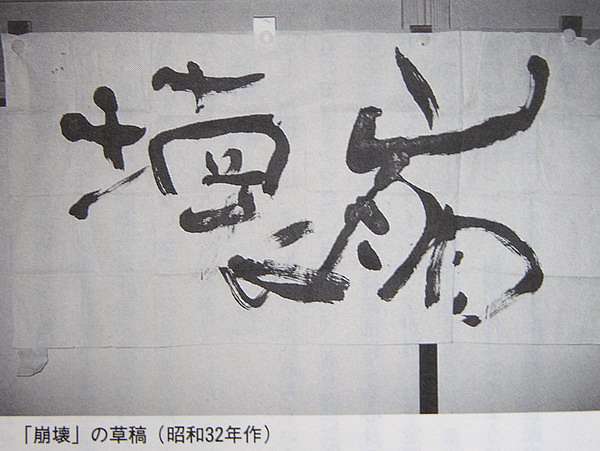 崩壊
「崩壊」の草稿（昭和32年作）